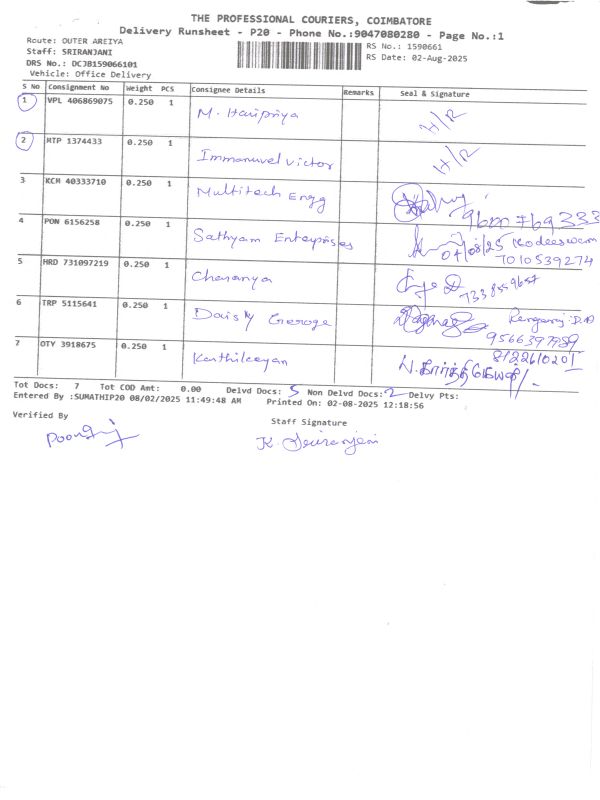 THE PROFESSIONAL COURIERS, COIMBATORE
Delivery Runsheet - P20 - Phone No.:9047080280 - Page No.:1
Route: OUTER AREIYA
RS No.: 1590661
Staff: SRIRANJANI
RS Date: 02-Aug-2025
DRS No.: DCJB159066101
Vehicle: Office Delivery
S No Consignment No Weight PCS Consignee Details Remarks Seal & Signature
1 VPL 406869075 0.250 1 M. Haripriya H/R
2 MTP 1374433 0.250 1 Immanuvel victor H/R
3 KCM 40333710 0.250 1 Multitech Engg
4 PON 6156258 0.250 1 Sathyam Enterprises 04/08/25
7010539274
5 HRD 731097219 0.250 1 Charanya
6 TRP 5115641 0.250 1 Daisy Geroge
9566397989
7 OTY 3918675 0.250 1 Karthikeyan 8122610201
Tot Docs: 7 Tot COD Amt: 0.00 Delvd Docs: 5 Non Delvd Docs: 2 Delvy Pts:
Entered By :SUMATHIP20 08/02/2025 11:49:48 AM Printed On: 02-08-2025 12:18:56
Verified By
Staff Signature